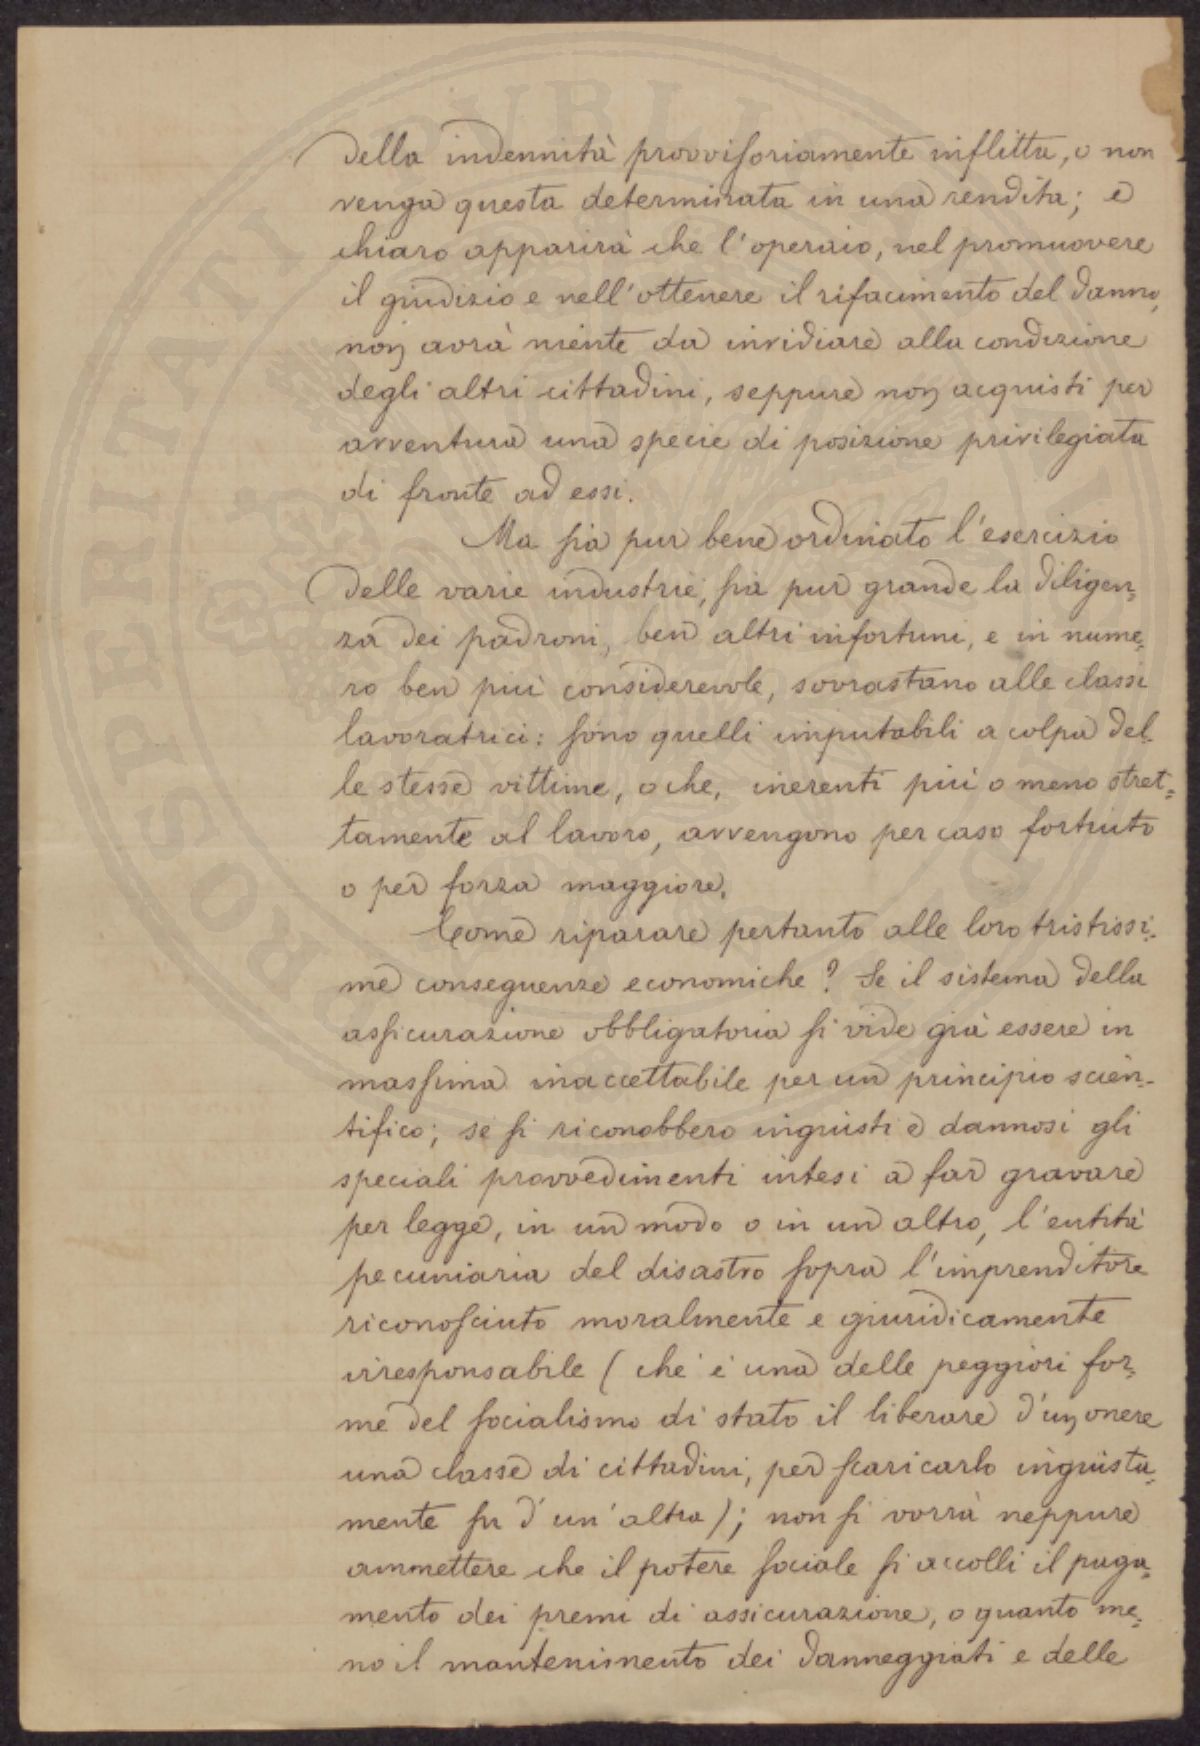 della indennità provvisoriamente inflitta, o non
venga questa determinata in una rendita; e
chiaro apparirà che l'operaio, nel promuovere
il giudizio e nell'ottenere il rifacimento del danno,
non avrà niente da invidiare alla condizione
degli altri cittadini, seppure non acquisti per
avventura una specie di posizione privilegiata
di fronte ad essi.
Ma sia pur bene ordinato l'esercizio
delle varie industrie, sia pur grande la diligen=
za dei padroni, ben altri infortuni, e in nume=
ro ben più considerevole, sovrastano alle classi
lavoratrici: sono quelli imputabili a colpa del=
le stesse vittime, o che, inerenti più o meno stret=
tamente al lavoro, avvengono per caso fortuito
o per forza maggiore.
Come riparare pertanto alle loro tristissi=
me conseguenze economiche? Se il sistema della
assicurazione obbligatoria si vide già essere in
massima inaccettabile per un principio scien-
tifico; se si riconobbero ingiusti e dannosi gli
speciali provvedimenti intesi a far gravare
per legge, in un modo o in un altro, l'entità
pecuniaria del disastro sopra l'imprenditore
riconosciuto moralmente e giuridicamente
irresponsabile (chè è una delle peggiori for=
me del socialismo di stato il liberare d'un onere
una classe di cittadini, per scaricarlo ingiusta=
mente su d'un'altra); non si vorrà neppure
ammettere che il potere sociale si accolli il paga=
mento dei premi di assicurazione, o quanto me=
no il mantenimento dei danneggiati e delle
PROSPERITATI PVBLICAE